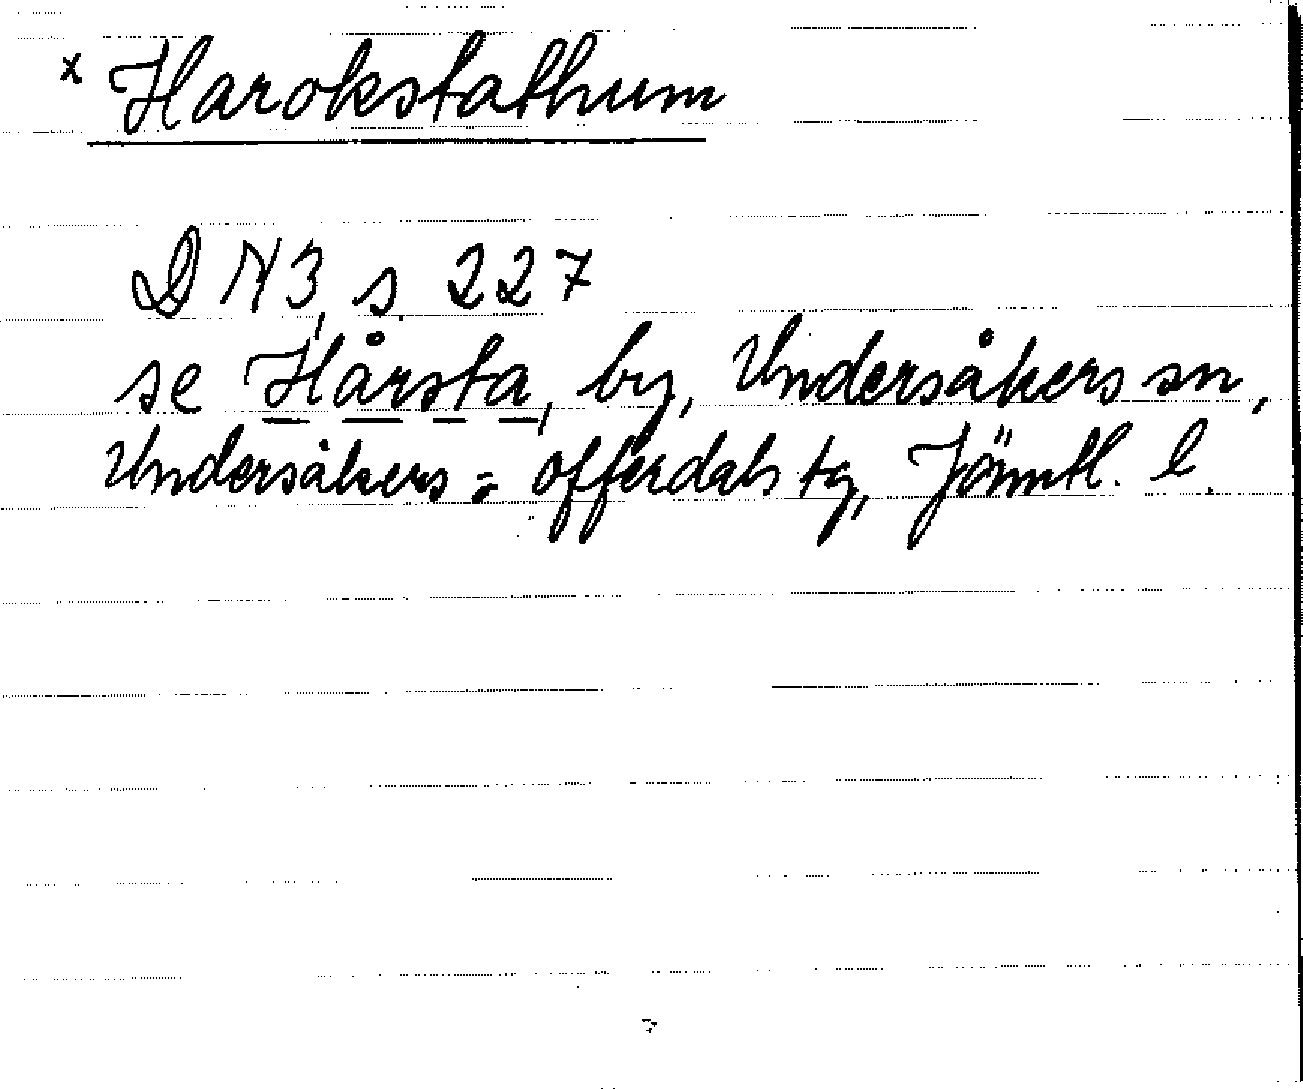 x Harokstathum
DN 3, s. 227
se Hårsta, by, Undersåkers sn,
Undersåkers = Offerdals tg, Jämtl. l.